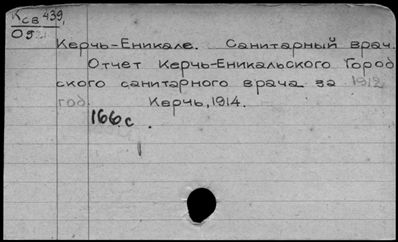 Ксв 439,
Керчь-Еникале. Санитарный врач.
Отчет Керчь-Еникальского Город
ского санитарного врача за 1912
год. Керчь, 1914.
166 с.